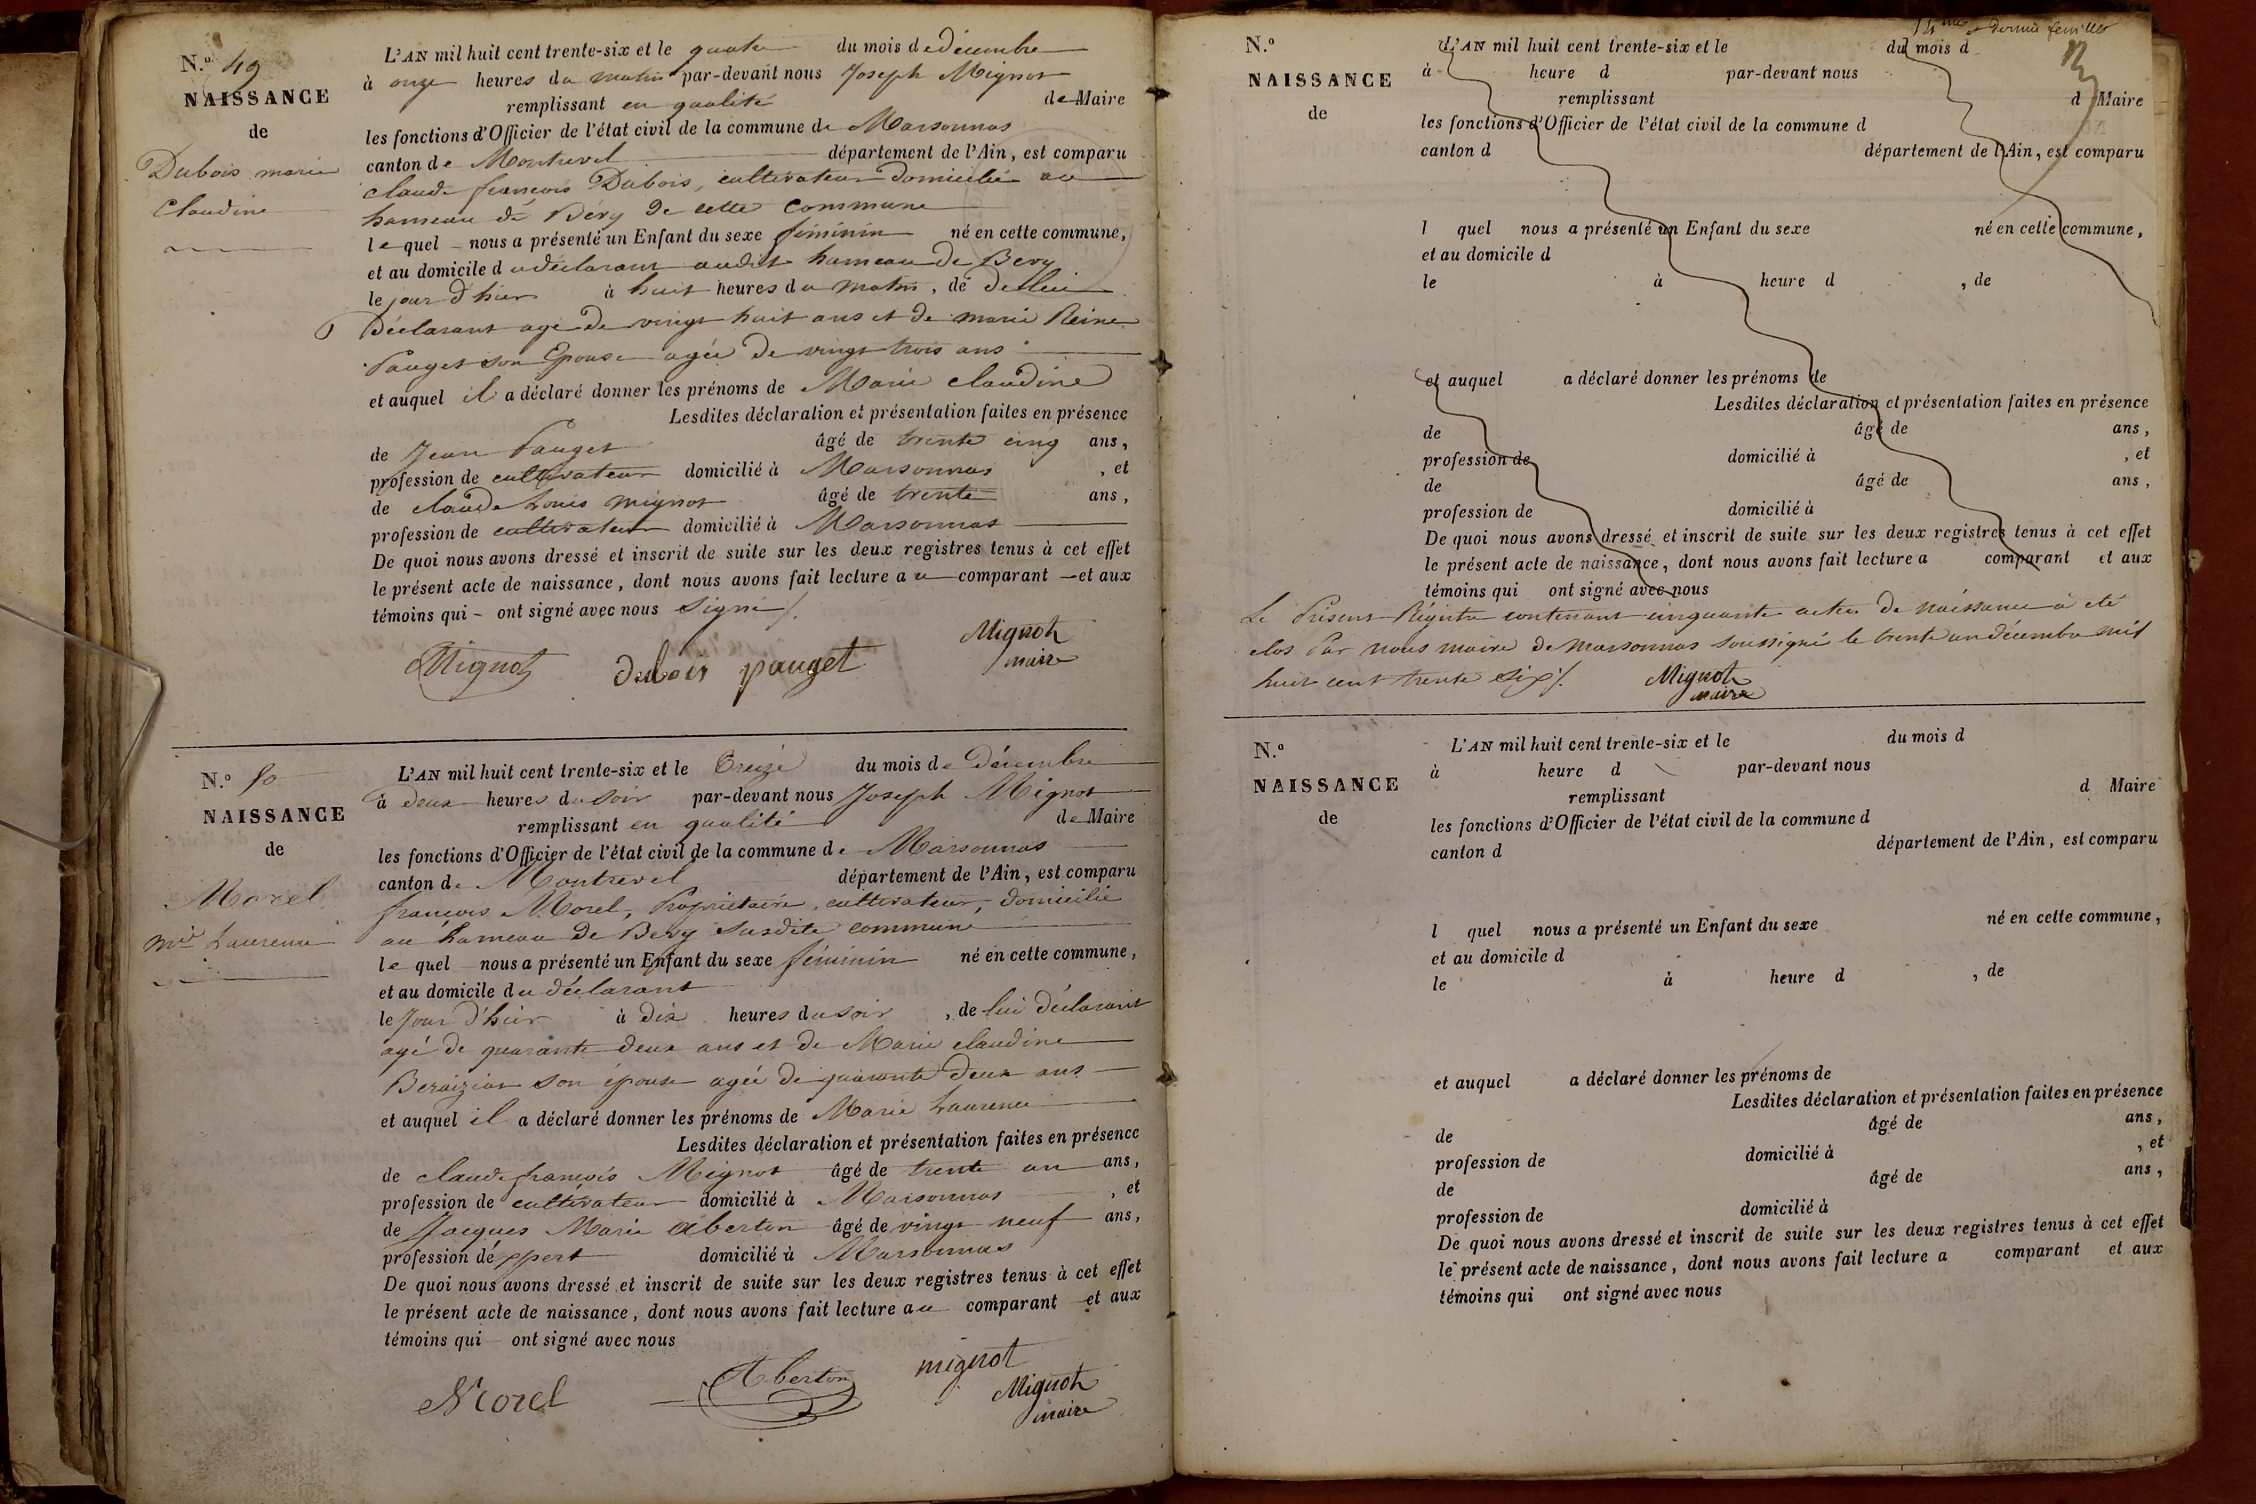 N.º 49
NAISSANCE
de
Dubois marie
Claudine
L'AN mil huit cent trente-six et le quatre du mois de décembre
à onze heures du matin par-devant nous Joseph Mignot
remplissant en qualité de Maire
les fonctions d'Officier de l'état civil de la commune de Marsonnas
canton de Montrevel département de l'Ain, est comparu
claude françois Dubois, cultivateur domicilié au
hameau de Bévy de cette commune
le quel nous a présenté un Enfant du sexe féminin né en cette commune,
et au domicile du déclarant audit hameau de Bevy
le jour d'hier à huit heures du matin, de de lui
Déclarant agé de vingt huit ans et de marie Reine
Pauget son Epouse agée de vingt trois ans
et auquel il a déclaré donner les prénoms de Marie claudine
Lesdites déclaration et présentation faites en présence
de Jean Pauget âgé de trente cinq ans,
profession de cultivateur domicilié à Marsonnas, et
de claude Louis mignot âgé de trente ans,
profession de cultivateur domicilié à Marsonnas
De quoi nous avons dressé et inscrit de suite sur les deux registres tenus à cet effet
le présent acte de naissance, dont nous avons fait lecture au comparant et aux
témoins qui ont signé avec nous signé /.
Mignot Dubois pauget Mignot
maire
N.º 50
NAISSANCE
de
Morel
Mie Laurence
L'AN mil huit cent trente-six et le Treize du mois de Décembre
à deux heures du soir par-devant nous Joseph Mignot
remplissant en qualité de Maire
les fonctions d'Officier de l'état civil de la commune de Marsonnas
canton de Montrevel département de l'Ain, est comparu
françois Morel, Propriétaire, cultivateur, domicilié
au hameau de Bevy susdite commune
le quel nous a présenté un Enfant du sexe féminin né en cette commune,
et au domicile du déclarant
le Jour d'hier à dix heures du soir, de lui déclarant
agé de quarante deux ans et de Marie claudine
son épouse agée de quarante deux ans
et auquel il a déclaré donner les prénoms de Marie Laurence
Lesdites déclaration et présentation faites en présence
de claude françois Mignot âgé de trente un ans,
profession de cultivateur domicilié à Marsonnas, et
de Jacques Marie Aberton âgé de vingt neuf ans,
profession d'expert domicilié à Marsonnas
De quoi nous avons dressé et inscrit de suite sur les deux registres tenus à cet effet
le présent acte de naissance, dont nous avons fait lecture au comparant et aux
témoins qui ont signé avec nous
Morel Aberton mignot
Mignot
maire
14me et dernier feuillet
N.º
NAISSANCE
de
L'AN mil huit cent trente-six et le du mois d
à heure d par-devant nous
remplissant d Maire
les fonctions d'Officier de l'état civil de la commune d
canton d département de l'Ain, est comparu
l quel nous a présenté un Enfant du sexe né en cette commune,
et au domicile d
le à heure d , de
et auquel a déclaré donner les prénoms de
Lesdites déclaration et présentation faites en présence
de âgé de ans,
profession de domicilié à , et
de âgé de ans,
profession de domicilié à
De quoi nous avons dressé et inscrit de suite sur les deux registres tenus à cet effet
le présent acte de naissance, dont nous avons fait lecture a comparant et aux
témoins qui ont signé avec nous
Le Présent Régistre contenant cinquante actes de naissance a été
clos Par nous maire de Marsonnas soussigné le trente un décembre mil
huit cent trente six /. Mignot
maire
N.º
NAISSANCE
de
L'AN mil huit cent trente-six et le du mois d
à heure d par-devant nous
remplissant d Maire
les fonctions d'Officier de l'état civil de la commune d
canton d département de l'Ain, est comparu
l quel nous a présenté un Enfant du sexe né en cette commune,
et au domicile d
le à heure d , de
et auquel a déclaré donner les prénoms de
Lesdites déclaration et présentation faites en présence
de âgé de ans,
profession de domicilié à , et
de âgé de ans,
profession de domicilié à
De quoi nous avons dressé et inscrit de suite sur les deux registres tenus à cet effet
le présent acte de naissance, dont nous avons fait lecture a comparant et aux
témoins qui ont signé avec nous